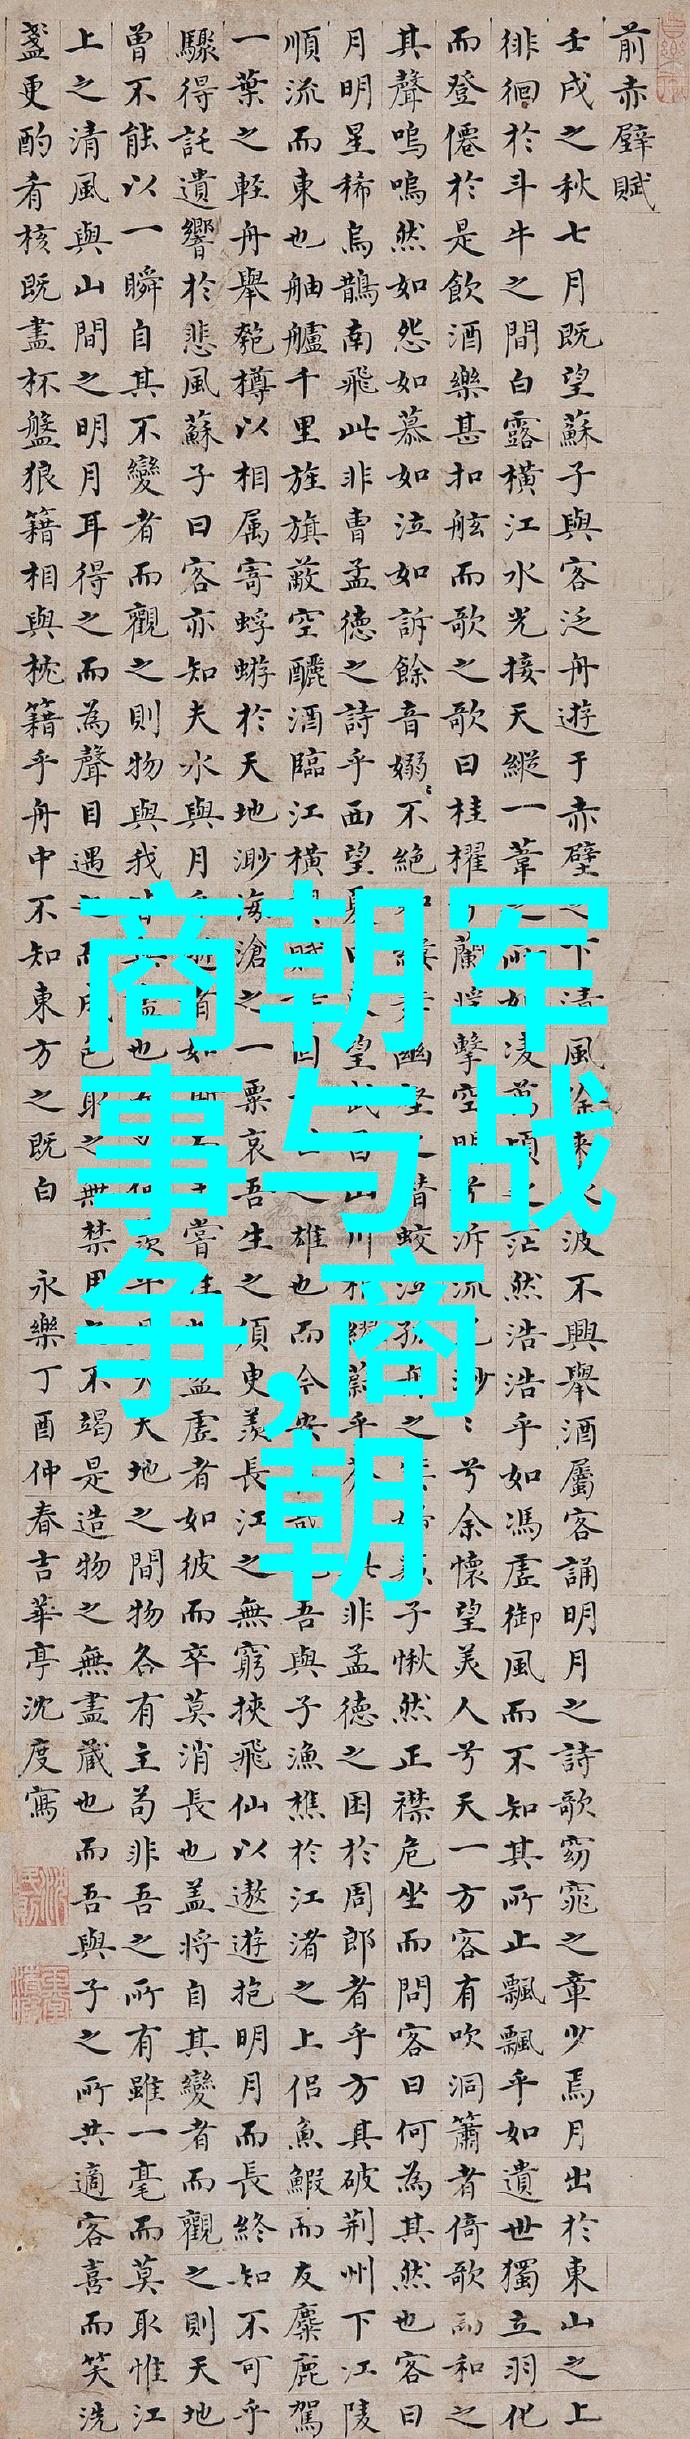 前赤壁賦
壬戌之秋七月既望蘇子與客泛舟遊于赤壁之下清風徐來水波不興舉酒屬客誦明月之詩歌窈窕之章少焉月出於東山之上
徘徊於斗牛之間白露橫江水光接天縱一葦之所如凌萬頃之茫然浩浩乎如馮虛御風而不知其所止飄飄乎如遺世獨立羽化
而登僊於是飲酒樂甚扣舷而歌之歌曰桂櫂兮蘭槳擊空明兮泝流光渺〻兮余懷望美人兮天一方客有吹洞簫者倚歌而和之
其聲嗚嗚然如怨如慕如泣如訴餘音嫋〻不絕如縷幽壑之潛蛟泣孤舟之嫠婦蘇子愀然正襟危坐而問客曰何為其然也客曰
月明星稀烏鵲南飛此非曹孟德之詩乎西望夏口東望武昌山川相繆鬱乎蒼此非孟德之困於周郎者乎方其破荊州下江陵
順流而東也舳艫千里旌旗蔽空釃酒臨江橫槊賦詩固一世之雄也而今安在哉況吾與子漁樵於江渚之上侶魚鰕而友麋鹿駕
一葉之輕舟舉匏樽以相属寄蜉蝣於天地渺海滄之一粟哀吾生之須臾羨長江之無窮挾飛仙以遨遊抱明月而長終知不可乎
驟得託遺響於悲風蘇子曰客亦知夫水與月乎逝者如斯而未嘗往也盈虛者如彼而卒莫消長也盖將自其變者而觀之則天地
曾不能以一瞬自其不變者而觀之則物與我皆無盡也而又何羨乎且夫天地之間物各有主苟非吾之所有雖一毫而莫取惟江
上之清風與山間之明月耳得之而為聲目遇之而成色取之無禁用之不竭是造物之無盡藏也而吾與子之所共適客喜而笑洗
盞更酌肴核既盡杯盤狼籍相與枕籍乎舟中不知東方之既白 永樂丁酉仲春吉華亭沈度寫
商朝军
事与战
争,商
朝